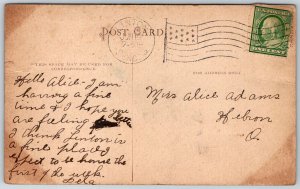 POST CARD
THIS SPACE MAY BE USED FOR CORRESPONDENCE.
FOR ADDRESS ONLY.
Hello Alice- I am
having a fine
time & I hope you
are feeling better
I think Linton is
a fine place I
expect to be home the
first of the week.
Lela
Miss Alice Adams
Hebron
O.